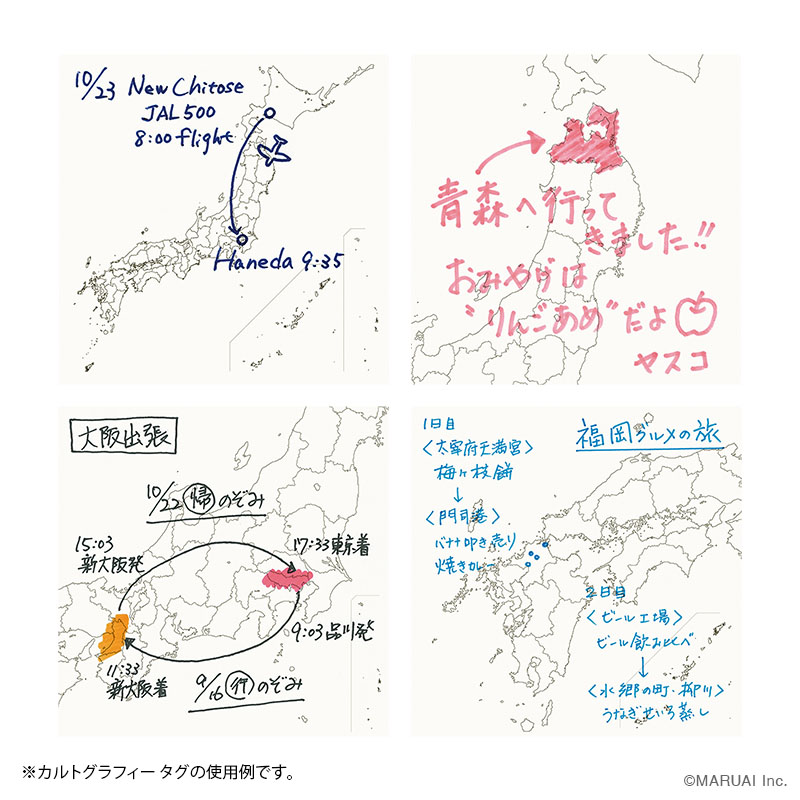 10/23 New Chitose
JAL500
8:00 flight
Haneda 9:35
青森へ行って
きました!!
おみやげは
"りんごあめ"だよ
ヤスコ
大阪出張
10/22 帰 のぞみ
15:03
新大阪発
17:33東京着
9:03品川発
11:33
新大阪着
9/16 行 のぞみ
1日目
〈太宰府天満宮〉
梅ヶ枝餅
↓
〈門司港〉
バナナ叩き売り
焼きカレー
福岡グルメの旅
2日目
〈ビール工場〉
ビール飲み比べ
↓
〈水郷の町・柳川〉
うなぎせいろ蒸し
※カルトグラフィー タグの使用例です。
©MARUAI Inc.